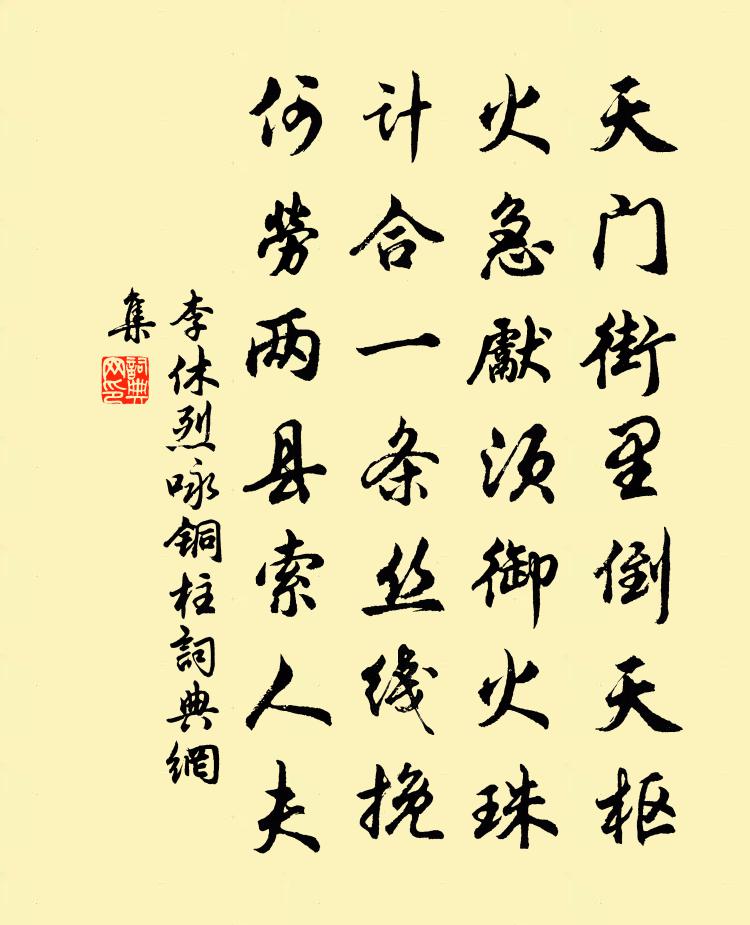 天门街里倒天枢
火急獻须御火珠
计合一条丝线挽
何劳两县索人夫
李休烈咏銅柱詞典網
集
詞典网印